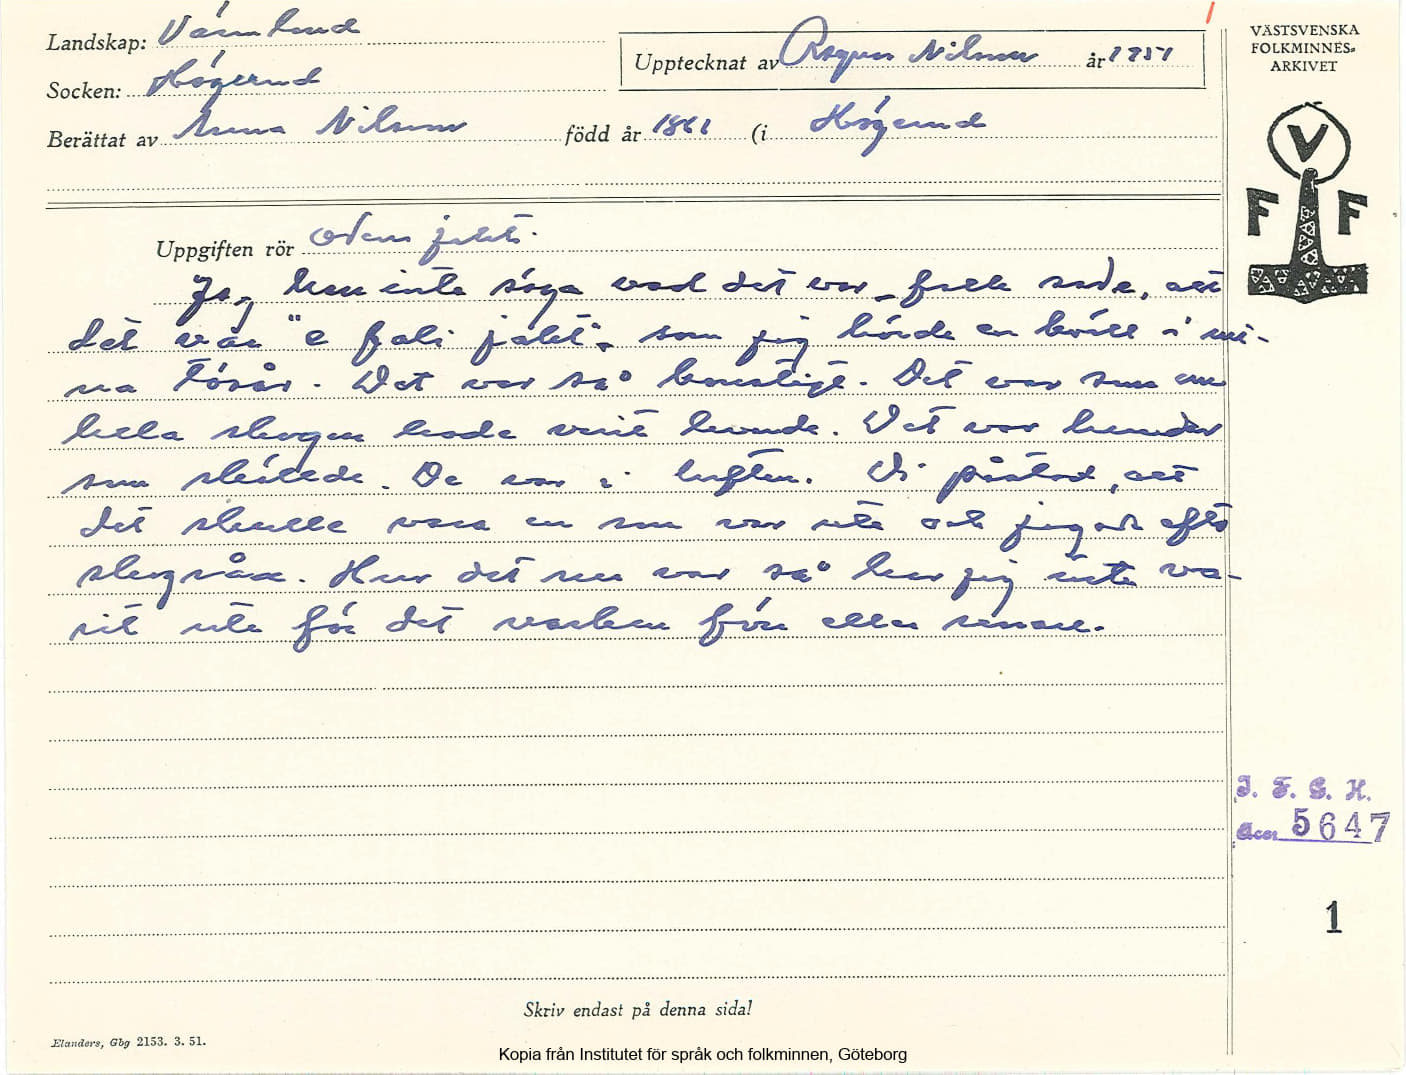 Landskap: Värmland
Socken: Högerud
Upptecknat av Ragnar Nilsson år 1951
Berättat av Anna Nilsson född år 1861 (i Högerud
VÄSTSVENSKA
FOLKMINNES-
ARKIVET
V
F F
Uppgiften rör Odens jakt.
Jag kan inte säga vad det var, folk sade, att
det var "e fali jakt", som jag hörde en kväll i mi-
na tösår. Det var så konstigt. Det var som om
hela skogen hade varit levande. Det var hundar
som skällde. De var i luften. Di påstod, att
det skulle vara en som var ute och jagade efter
skogsrån. Hur det nu var så har jag inte va-
rit ute för det varken förr eller senare.
I. F. G. H.
Acc. 5647
1
Skriv endast på denna sida!
Elanders, Gbg 2153. 3. 51.
Kopia från Institutet för språk och folkminnen, Göteborg